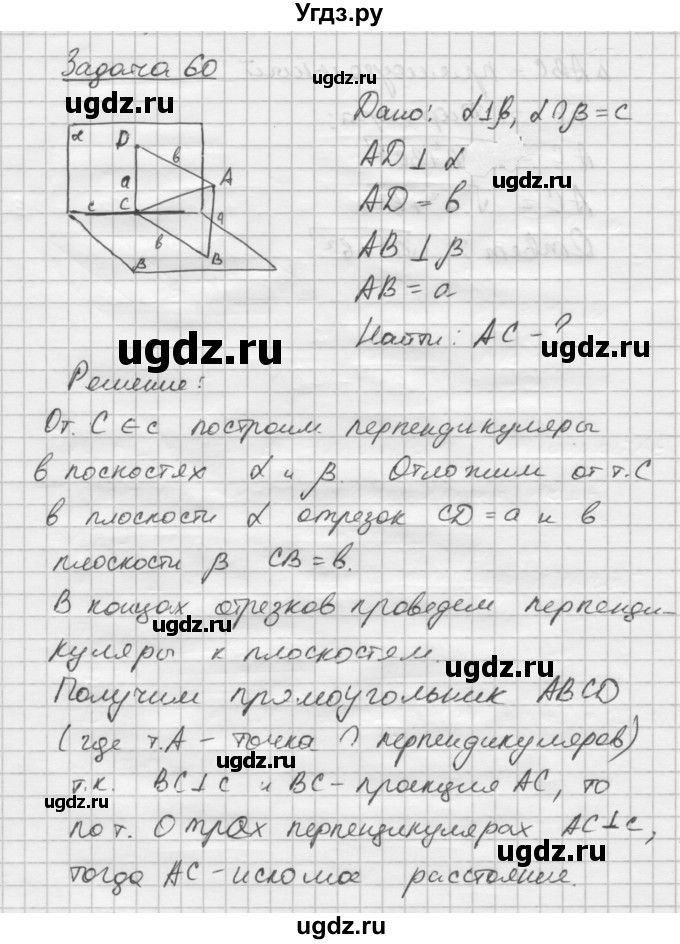 Угдз.ру
Задача 60
ugdz.ru
ugdz.ru
Дано: α⊥β, α∩β=c
α D b A a C c a b B B
AD⊥α
ugdz.ru
AD=b
AB⊥β
AB=a
ugdz.ru
Найти: AC-?
ugdz.ru
Решение:
От. C∈c построим перпендикуляры
в поскостях α и β. Отложим от т.C
ugdz.ru
в плоскости α отрезок CD=a и в
плоскости β CB=b.
В концах отрезков проведем перпенди-
ugdz.ru
куляры к плоскостям.
ugdz.ru
Получим прямоугольник ABCD
(где т.A - точка ∩ перпендикуляров)
ugdz.ru
т.к. BC⊥c и BC-проекция AC, то
ugdz.ru
по т. О трех перпендикулярах AC⊥c,
ugdz.ru
тогда AC-искомое расстояние.
ugdz.ru
ugdz.ru